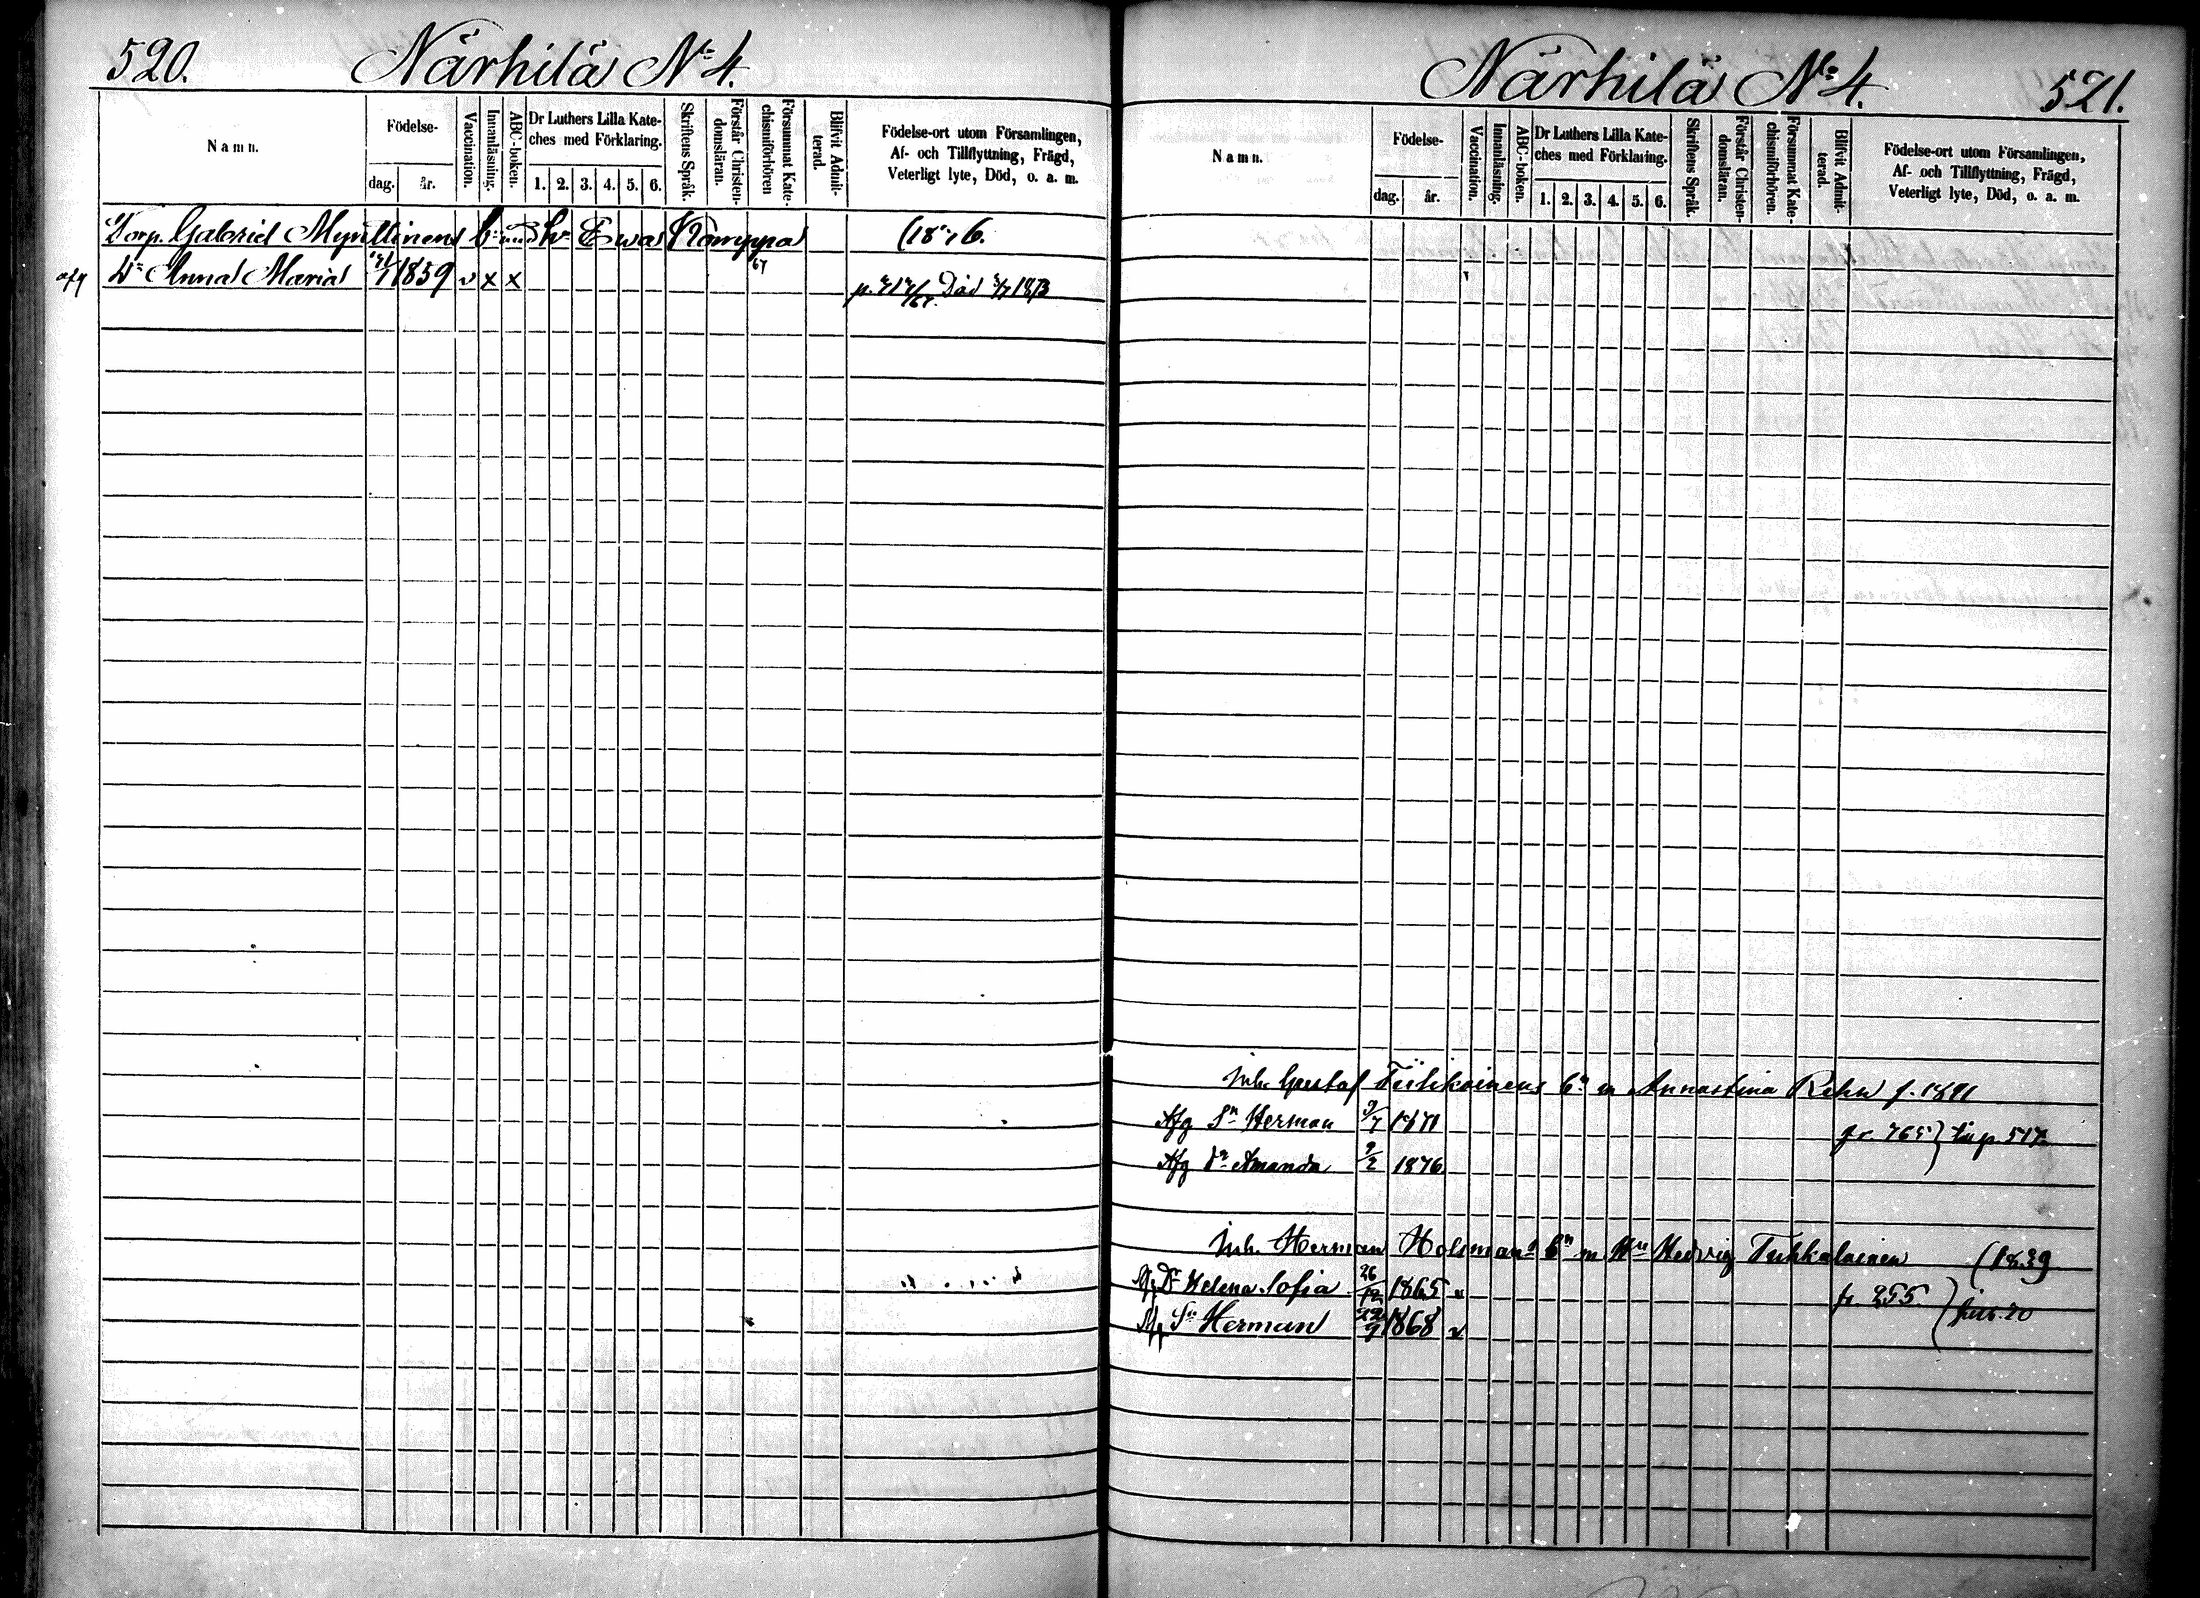 520. Närhilä No 4.
Namn.
Födelse-
dag.
år.
Vaccination.
Innanläsning.
ABC-boken.
Dr Luthers Lilla Kate-
ches med Förklaring.
1. 2. 3. 4. 5. 6.
Skriftens Språk.
Förstår Christen-
domsläran.
Försummat Kate-
chismiförhören
Blifvit Admit-
terad.
Födelse-ort utom Församlingen,
Af- och Tillflyttning, Frägd,
Veterligt lyte, Död, o. a. m.
Torp. Gabriel Mynttinens bn med h. Ewa Komppa
Dr Anna Maria 1859 v x x Död 1873
Närhilä No 4. 521.
Namn.
Födelse-
dag.
år.
Vaccination.
Innanläsning.
ABC-boken.
Dr Luthers Lilla Kate-
ches med Förklaring.
1. 2. 3. 4. 5. 6.
Skriftens Språk.
Förstår Christen-
domsläran.
Försummat Kate-
chismiförhören.
Blifvit Admit-
terad.
Födelse-ort utom Församlingen,
Af- och Tillflyttning, Frägd,
Veterligt lyte, Död, o. a. m.
Inh. Gustaf Tiilikainens bn m Annastina Rehn
Afg Sn Herman 1871 fr. 765
Afg Dr Amanda 9/2 1876
Inh. Herman Holmans bn m Hu Hedvig Tukkalainen (1839
Afg Dr Helena Sofia 26/12 1865 v fr. 255.
Afg Sn Herman 1868 v